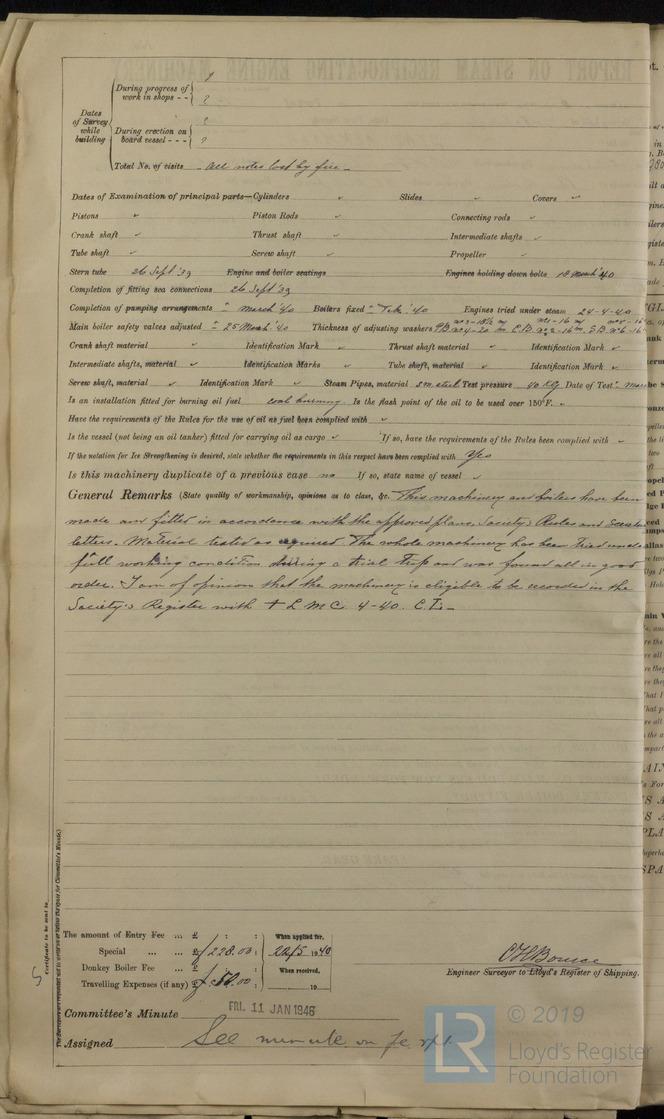 During progress of
work in shops - - ?
Dates
of Survey
while
building
During erection on
board vessel - - - ?
Total No. of visits All notes lost by fire
Dates of Examination of principal parts—Cylinders Slides Covers
Pistons Piston Rods Connecting rods
Crank shaft Thrust shaft Intermediate shafts
Tube shaft Screw shaft Propeller
Stern tube 26 Sept '39 Engine and boiler seatings Engines holding down bolts 18 March '40
Completion of fitting sea connections 26 Sept '39
Completion of pumping arrangements " March '40 Boilers fixed " Feb. '40 Engines tried under steam 24-4-40
Main boiler safety valves adjusted " 25 March '40 Thickness of adjusting washers
Crank shaft material Identification Mark Thrust shaft material Identification Mark
Intermediate shafts, material Identification Marks Tube shaft, material Identification Mark
Screw shaft, material Identification Mark Steam Pipes, material S.M. steel Test pressure 40 Kg Date of Test
Is an installation fitted for burning oil fuel coal burning Is the flash point of the oil to be used over 150°F.
Have the requirements of the Rules for the use of oil as fuel been complied with
Is the vessel (not being an oil tanker) fitted for carrying oil as cargo If so, have the requirements of the Rules been complied with
If the notation for Ice Strengthening is desired, state whether the requirements in this respect have been complied with Yes
Is this machinery duplicate of a previous case no If so, state name of vessel
General Remarks (State quality of workmanship, opinions as to class, &c. This machinery and boilers have been
made and fitted in accordance with the approved plans, Society's Rules and
letters. Material tested as required. The whole machinery has been tried under
full working condition during a trial trip and was found all in good
order. I am of opinion that the machinery is eligible to be recorded in the
Society's Register with + L M C. 4-40. C.L.
The amount of Entry Fee ... £ : :
Special ... ... £ 228.00 :
Donkey Boiler Fee ... £ : :
Travelling Expenses (if any) £ 50.00 :
When applied for,
22/5 1940
When received,
19
Engineer Surveyor to Lloyd's Register of Shipping.
Committee's Minute FRI. 11 JAN 1946
Assigned See minute on
Certificate to be sent to
LR
© 2019
Lloyd's Register
Foundation